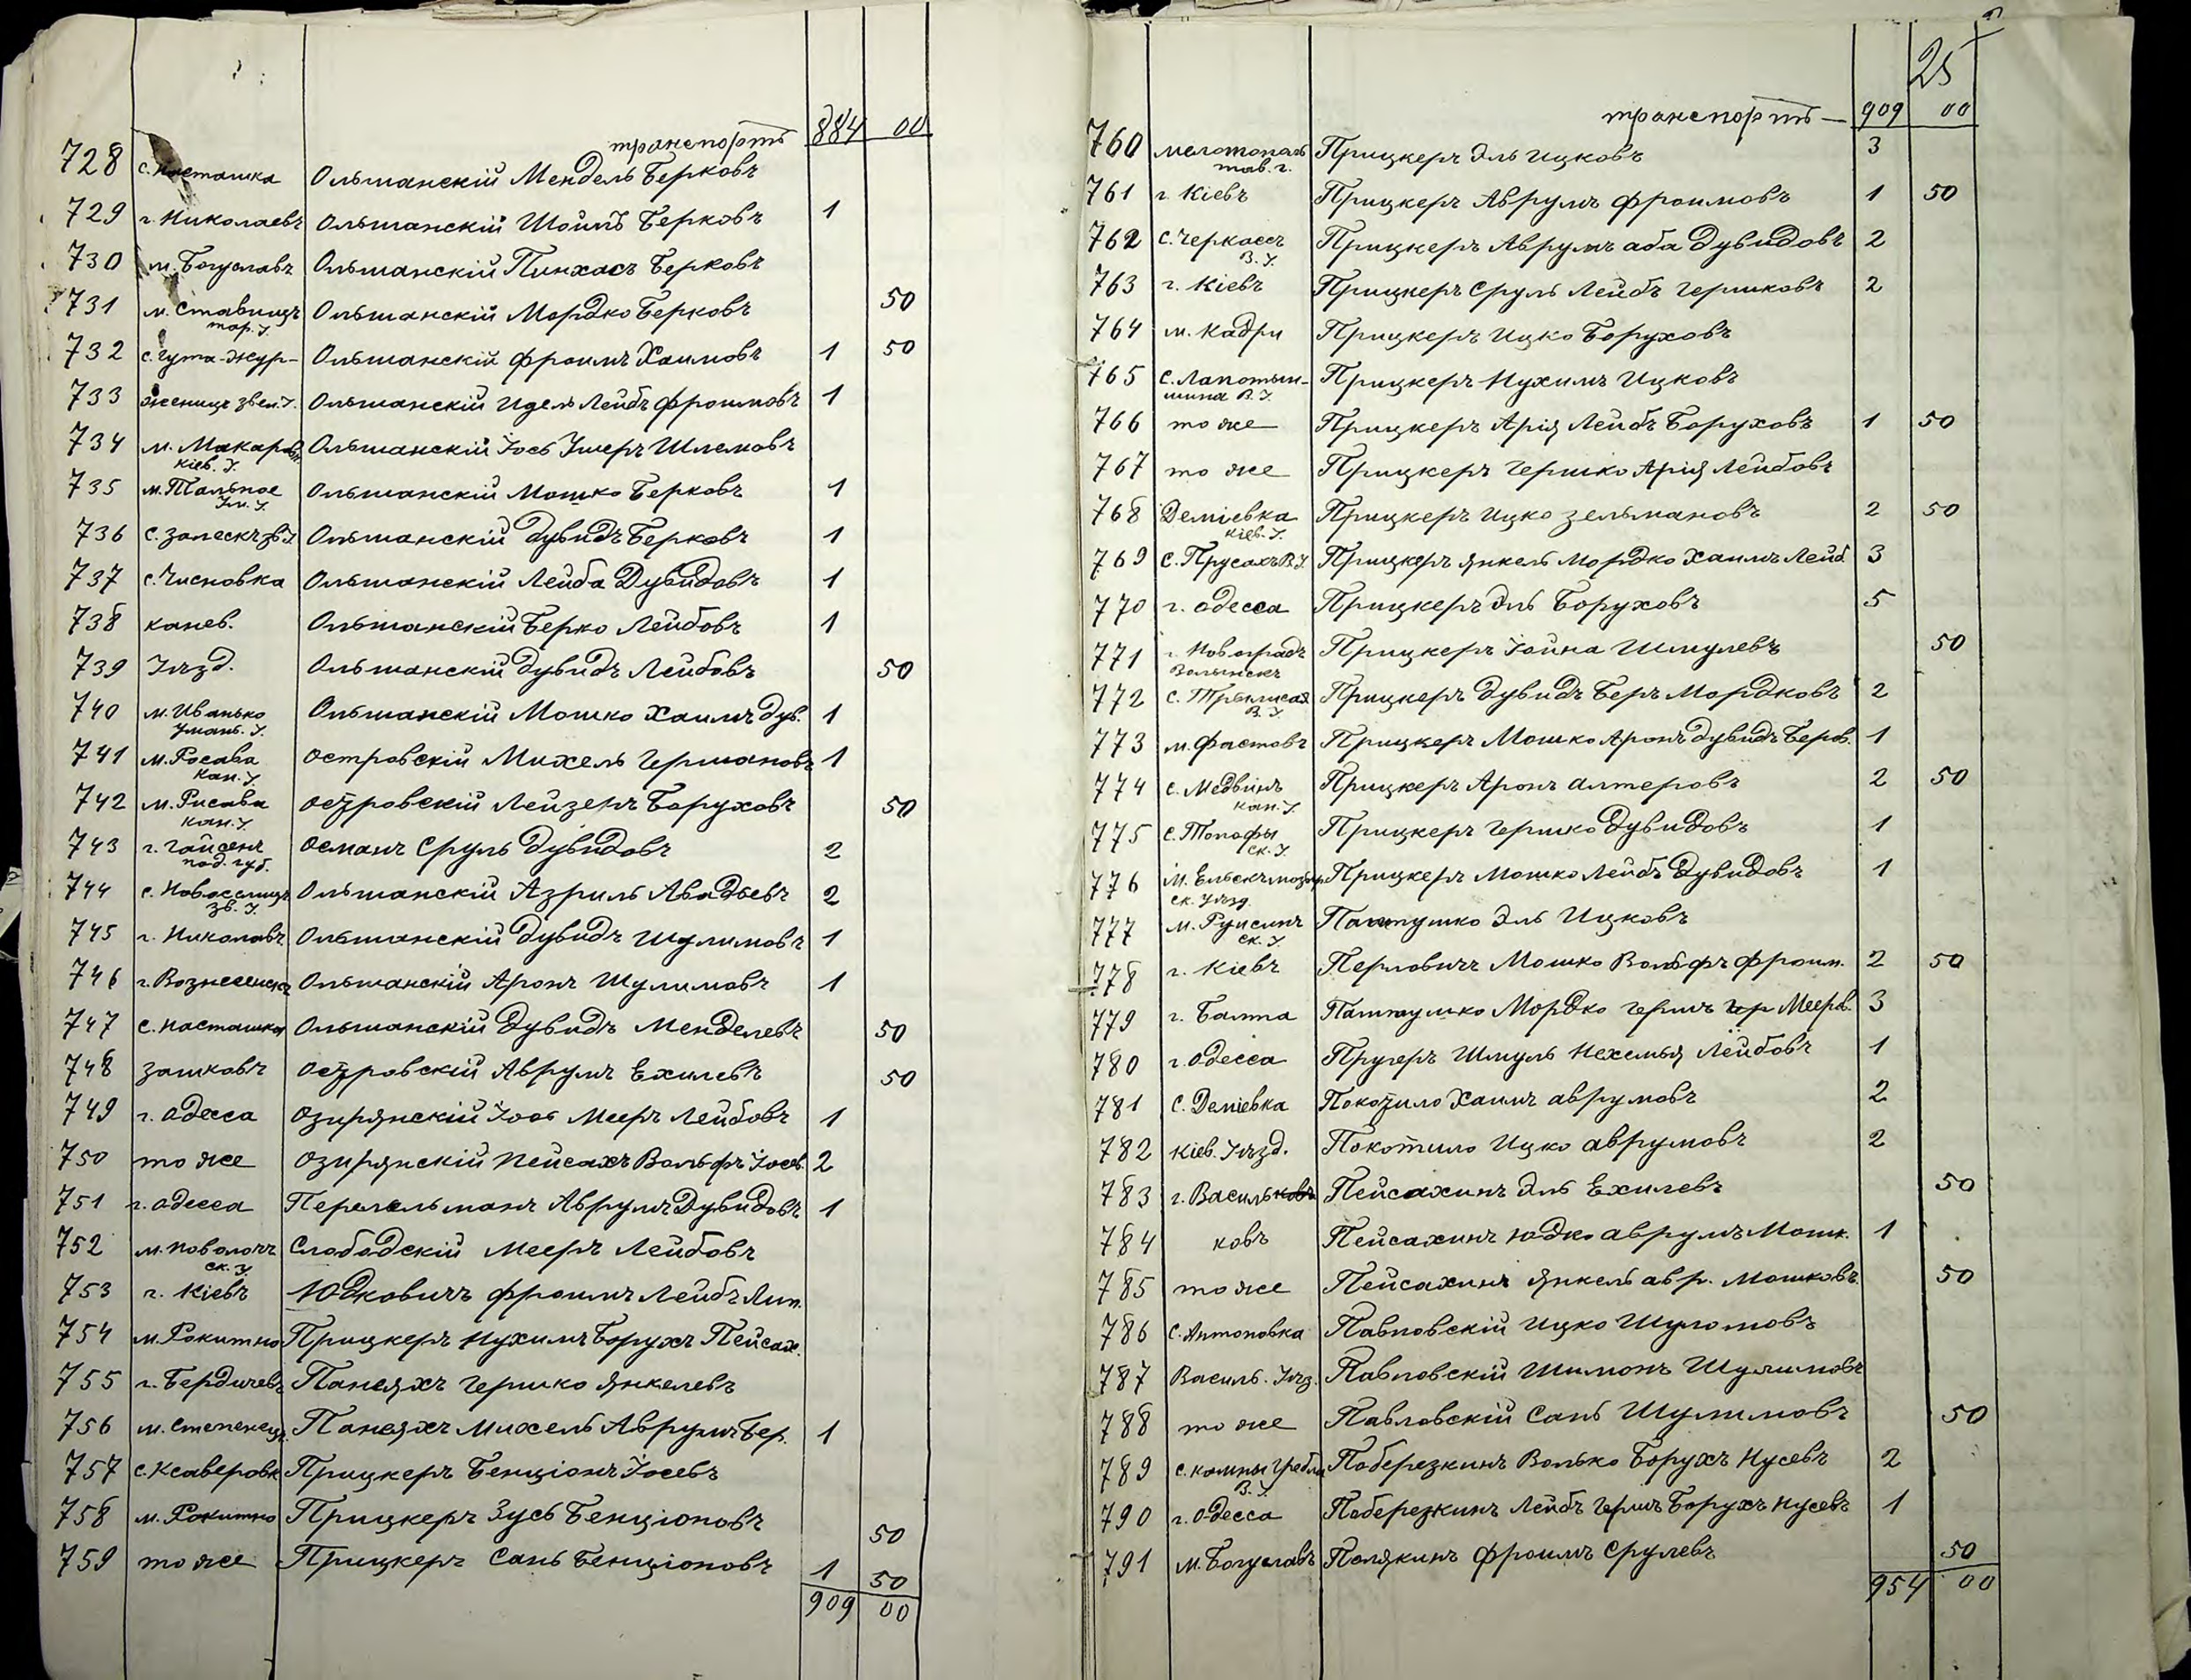 транспортъ 884 00
728 с. Насташка Ольшанскій Мендель Берковъ
729 г. Николаевъ Ольшанскій Шоимъ Берковъ 1
730 м. Богуславъ Ольшанскій Пинхасъ Берковъ
731 м. Ставищъ Ольшанскій Мордко Берковъ 50
тар. У.
732 с. Гута-Жур- Ольшанскій Фроимъ Хаимовъ 1 50
733 женицъ звен. У. Ольшанскій Идель Лейбъ Фроимовъ 1
734 м. Макаровъ Ольшанскій Іось Ушеръ Шлемовъ
Кіев. У.
735 м. Тальное Ольшанскій Мошко Берковъ 1
Ум. У.
736 с. Залескъ зв. У. Ольшанскій Дувидъ Берковъ 1
737 с. Чисновка Ольшанскій Лейба Дувидовъ 1
738 канев. Ольшанскій Берко Лейбовъ 1
739 Уѣзд. Ольшанскій Дувидъ Лейбовъ 50
740 м. Иванько Ольшанскій Мошко Хаимъ Дув. 1
Уман. У.
741 м. Росава Островскій Михель Гершановъ 1
Кан. У.
742 м. Рисава Островскій Лейзеръ Боруховъ 50
Кан. У.
743 г. Гайсенъ Османъ Сруль Дувидовъ 2
под. губ.
744 с. Новоселица Ольшанскій Азриль Авадьевъ 2
Зв. У.
745 г. Николавъ Ольшанскій Дувидъ Шулимовъ 1
746 г. Вознесенскъ Ольшанскій Аронъ Шулимовъ 1
747 с. Насташка Ольшанскій Дувидъ Менделевъ 50
748 Зашковъ Островскій Аврумъ Ехилевъ 50
749 г. Одесса Озирянскій Іось Мееръ Лейбовъ 1
750 то же Озирянскій Пейсахъ Вольфъ Іосев. 2
751 г. Одесса Перельманъ Аврумъ Дувидовъ 1
752 м. Поволочъ Слободскій Мееръ Лейбовъ
ск. У
753 г. Кіевъ Юдковичъ Фроимъ Лейбъ Лип.
754 м. Рокитно Прицкеръ Нухимъ Борухъ Пейсах.
755 г. Бердичевъ Панеяхъ Гершко Янкелевъ
756 м. Степенецъ Панеяхъ Михель Аврумъ Бер. 1
757 с. Ксаверовк Прицкеръ Бенціонъ Іосевъ
758 м. Рокитно Прицкеръ Зусь Бенціоновъ 50
759 то же Прицкеръ Сань Бенціоновъ 1 50
909 00
25
транспортъ 909 00
760 мелотополь Прицкеръ Эль Ицковъ 3
тав. г.
761 г. Кіевъ Прицкеръ Аврумъ Фроимовъ 1 50
762 с. Черкассъ Прицкеръ Аврумъ аба Дувидовъ 2
В. У.
763 г. Кіевъ Прицкеръ Сруль Лейбъ Гершковъ 2
764 м. Кадри Прицкеръ Ицко Боруховъ
765 с. Лапотын- Прицкеръ Нухимъ Ицковъ
щина В. У.
766 то же Прицкеръ Арія Лейбъ Боруховъ 1 50
767 то же Прицкеръ Гершко Арія Лейбовъ
768 Деміевка Прицкеръ Ицко Зельмановъ 2 50
Кіев. У.
769 с. Прусахъ В. У. Прицкеръ Янкель Мордко Хаимъ Лейб. 3
770 г. Одесса Прицкеръ Эль Боруховъ 5
771 г. Новоградъ Прицкеръ Іойна Шмулевъ 50
Волынскъ
772 с. Трылисах Прицкеръ Дувидъ Беръ Мордковъ 2
В. У.
773 м. Фастовъ Прицкеръ Мошко Аронъ Дувидъ Беров. 1
774 с. Медвинъ Прицкеръ Аронъ Алтеровъ 2 50
кан. У.
775 с. Топоры Прицкеръ Гершко Дувидовъ 1
ск. У.
776 м. Ельскъ мозыр. Прицкеръ Мошко Лейбъ Дувидовъ 1
ск. Уѣзд.
777 м. Ружинъ Паштушко Эль Ицковъ
ск. У.
778 г. Кіевъ Перловичъ Мошко Вольфъ Фроим. 2 50
779 г. Балта Паштушко Мордко Гершъ Меeров. 3
780 г. Одесса Пругеръ Шмуль Нехемья Лейбовъ 1
781 с. Деміевка Покотило Хаимъ Аврумовъ 2
782 Кіев. Уѣзд. Покотило Ицко Аврумовъ 2
783 г. Васильковъ Пейсахинъ Эль Ехилевъ 50
784 ковъ Пейсахинъ Юдко Аврумъ Мошк. 1
785 то же Пейсахинъ Янкель авр. Мошковъ 50
786 с. Антоновка Павловскій Ицко Шуломовъ
787 Василь. Уѣз. Павловскій Шимонъ Шулимовъ
788 то же Павловскій Сань Шулимовъ 50
789 с. Компы Гребля Поберезкинъ Волько Борухъ Нусевъ 2
В. У.
790 г. Одесса Поберезкинъ Лейбъ Гершъ Борухъ Нусевъ 1
791 м. Богуславъ Полякинъ Фроимъ Срулевъ 50
954 00